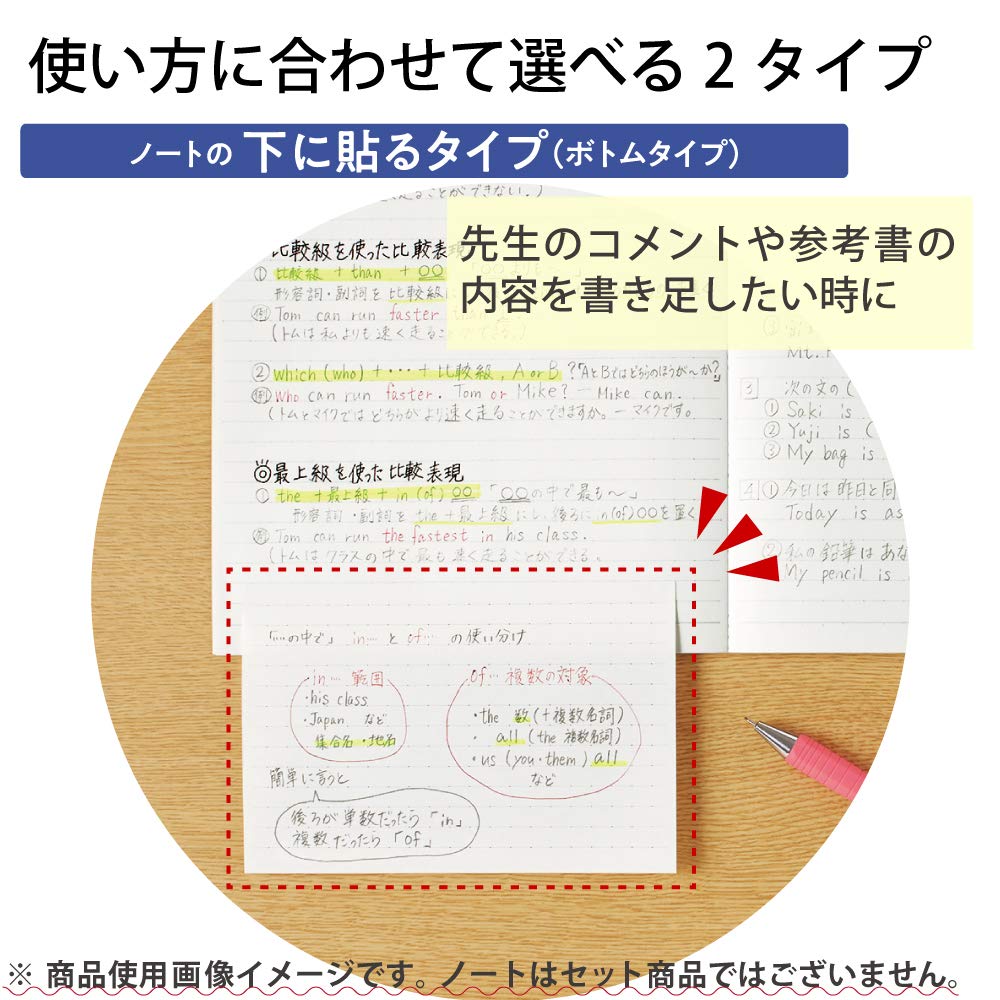 使い方に合わせて選べる2タイプ
ノートの 下に貼るタイプ(ボトムタイプ)
先生のコメントや参考書の
内容を書き足したい時に
ることができない.)
比較級を使った比較表現
① 比較級 + than + ○○
形容詞・副詞を 比較級に
例 Tom can run faster
(トムは私よりも速く走ること
② which (who) + … + 比較級, A or B ?「AとBではどちらのほうが~か?」
例 Who can run faster. Tom or Mike? ― Mike can.
(トムとマイクではどちらがより速く走ることができますか。― マイクです。
◎最上級を使った比較表現
① the + 最上級 + in (of) ○○ 「○○の中で最も~」
形容詞・副詞を the + 最上級 にし、後ろに in(of)○○を置く
例 Tom can run the fastest in his class.
(トムはクラスの中で最も速く走ることができる。
Mt.
3 次の文の(
① Saki is
② Yuji is (
③ My bag is
4 ① 今日は昨日と同
Today is as
② 私の鉛筆はあな
My pencil is
「…の中で」 in… と of… の使い分け
in… 範囲
・his class
・Japan など
集合名・地名
of… 複数の対象
・the 数(+複数名詞)
・all (the 複数名詞)
・us (you・them) all
など
簡単に言うと
後ろが単数だったら「in」
複数だったら「of」
※ 商品使用画像イメージです。ノートはセット商品ではございません。